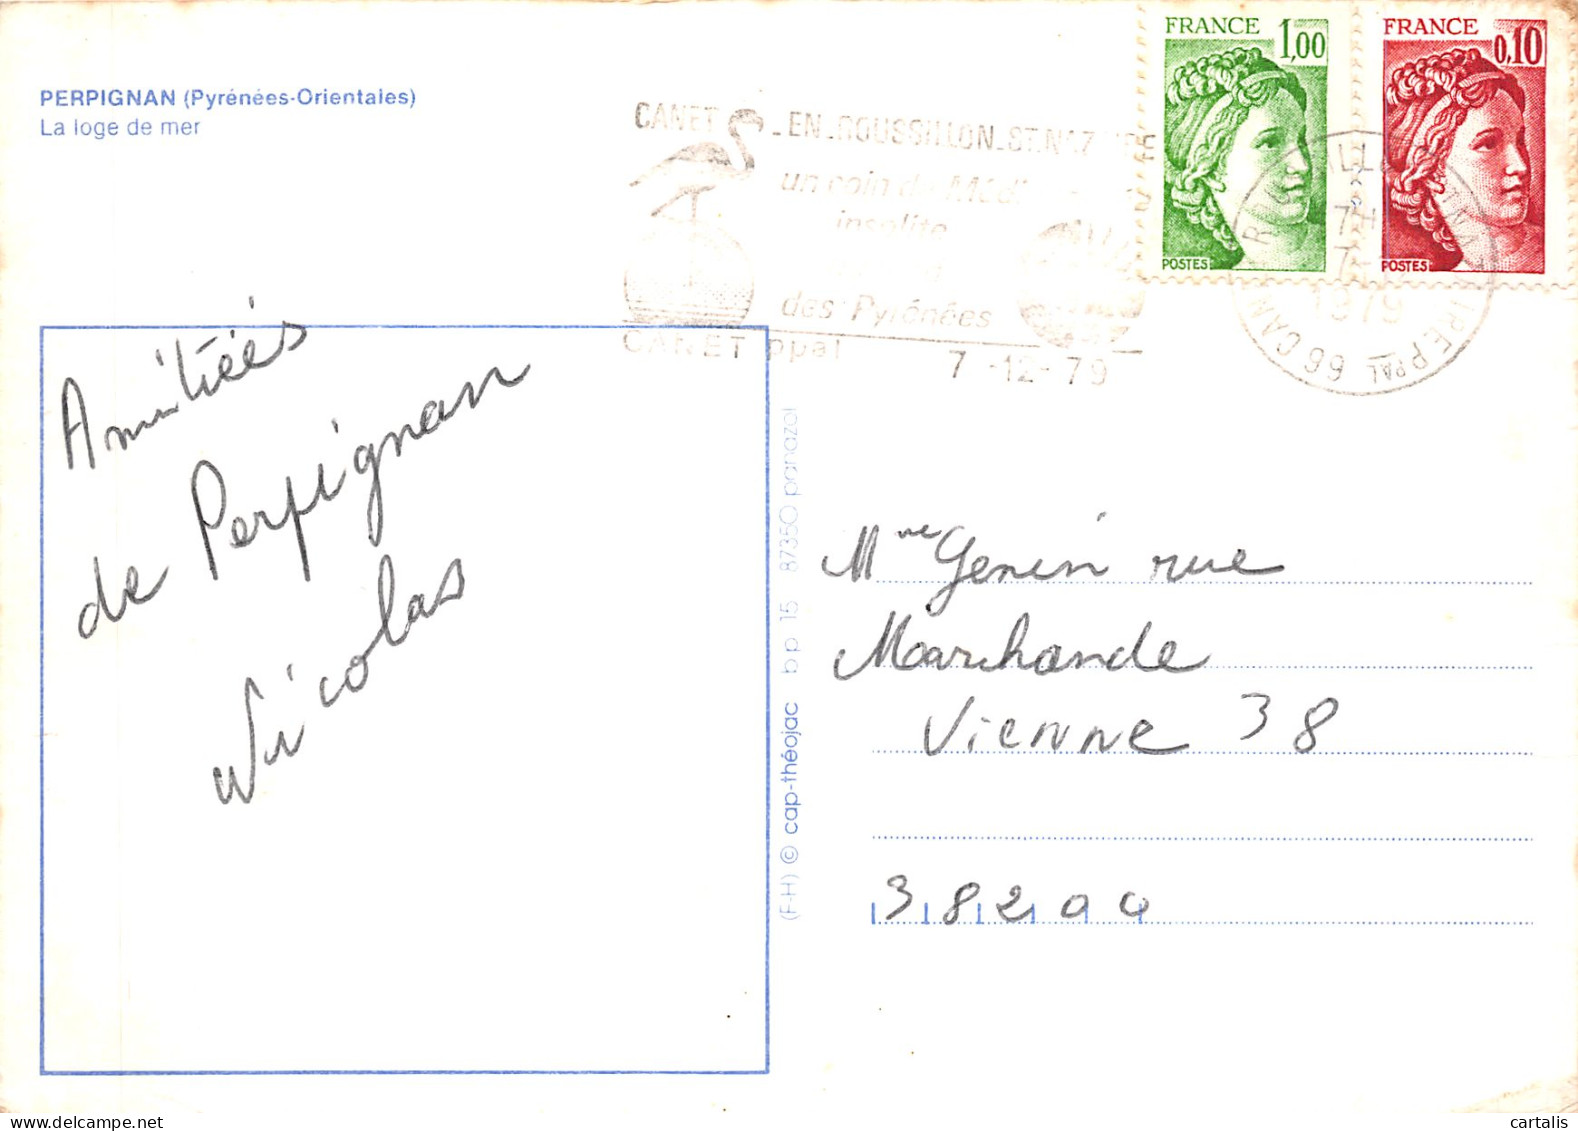 PERPIGNAN (Pyrénées-Orientales)
La loge de mer
FRANCE 1,00
POSTES
FRANCE 0,10
POSTES
CANET - EN - ROUSSILLON - ST.NAZ
un coin de Médi
insolite
des Pyrénées
CANET ppal
7 -12- 79
7H
7-
1979
66 CAN
PPAL
Amitiés
de Perpignan
Nicolas
(F-H) © cap-théojac bp 15 87350 panazol
Mme Genin rue
Marchande
Vienne 38
38200
© cartalis
www.delcampe.net